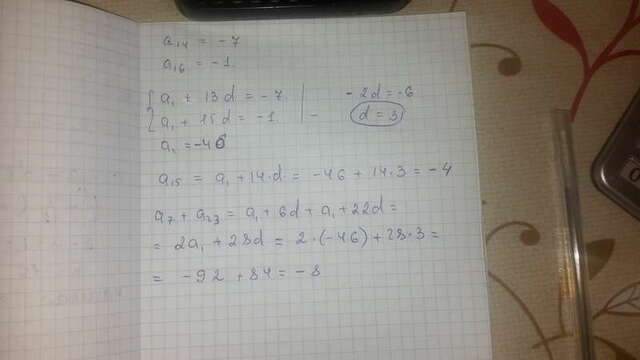 a₁₄ = -7
a₁₆ = -1
{ a₁ + 13d = -7 | - 2d = -6
{ a₁ + 15d = -1 | - d = 3
a₁ = -46
a₁₅ = a₁ + 14·d = -46 + 14·3 = -4
a₇ + a₂₃ = a₁ + 6d + a₁ + 22d =
= 2a₁ + 28d = 2·(-46) + 28·3 =
= -92 + 84 = -8